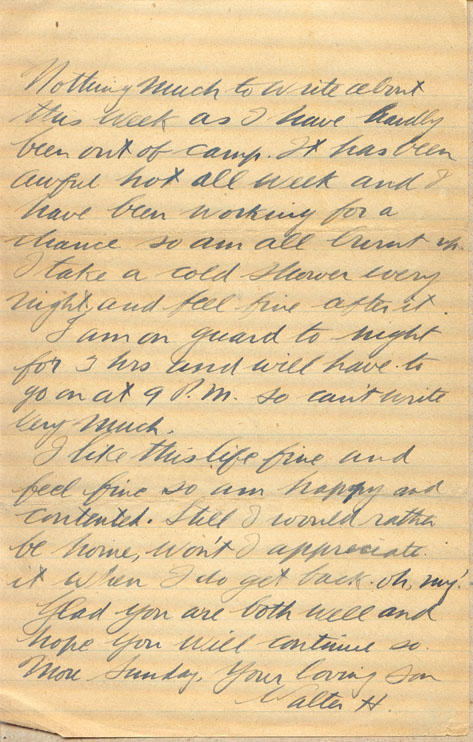 Nothing much to write about
this week as I have hardly
been out of camp. It has been
awful hot all week and I
have been working for a
chance so am all burnt up.
I take a cold shower every
night and feel fine after it.
I am on guard to night
for 3 hrs and will have to
go on at 9 P.M. so can't write
very much.
I like this life fine and
feel fine so am happy and
contented. Still I would rather
be home, won't I appreciate
it when I do get back. oh, my!
Glad you are both well and
hope you will continue so.
More Sunday. Your loving son
Walter H.